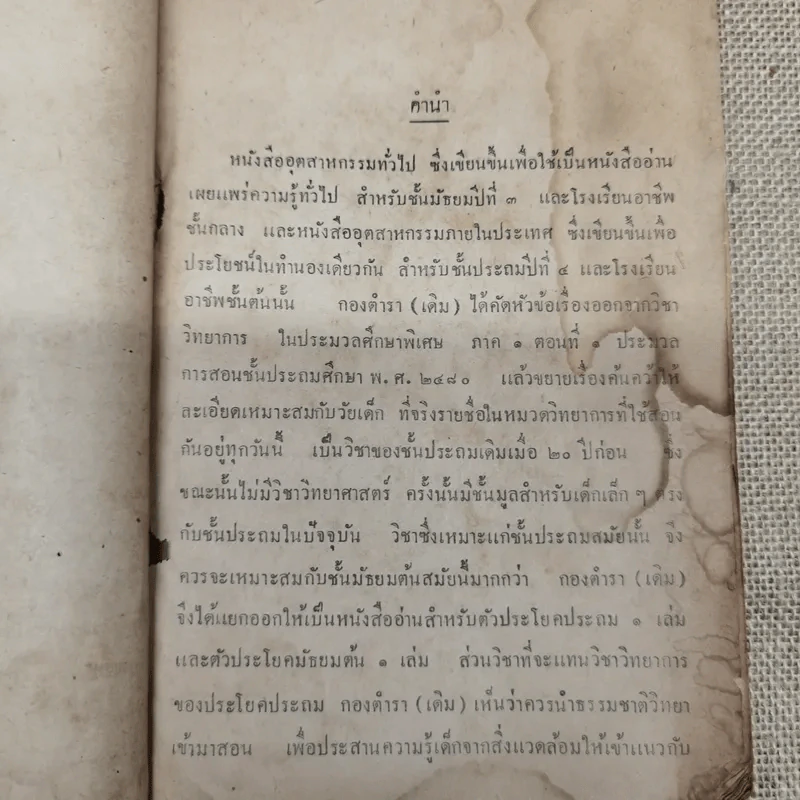 คำนำ
หนังสืออุตสาหกรรมทั่วไป ซึ่งเขียนขึ้นเพื่อใช้เป็นหนังสืออ่าน
เผยแพร่ความรู้ทั่วไป สำหรับชั้นมัธยมปีที่ ๓ และโรงเรียนอาชีพ
ชั้นกลาง และหนังสืออุตสาหกรรมภายในประเทศ ซึ่งเขียนขึ้นเพื่อ
ประโยชน์ในทำนองเดียวกัน สำหรับชั้นประถมปีที่ ๔ และโรงเรียน
อาชีพชั้นต้นนั้น กองตำรา (เดิม) ได้คัดหัวข้อเรื่องออกจากวิชา
วิทยาการ ในประมวลศึกษาพิเศษ ภาค ๑ ตอนที่ ๑ ประมวล
การสอนชั้นประถมศึกษา พ. ศ. ๒๔๘๐ แล้วขยายเรื่องค้นคว้าให้
ละเอียดเหมาะสมกับวัยเด็ก ที่จริงรายชื่อในหมวดวิทยาการที่ใช้สอน
กันอยู่ทุกวันนี้ เป็นวิชาของชั้นประถมเดิมเมื่อ ๒๐ ปีก่อน ซึ่ง
ขณะนั้นไม่มีวิชาวิทยาศาสตร์ ครั้งนั้นมีชั้นมูลสำหรับเด็กเล็ก ๆ ตรง
กับชั้นประถมในปัจจุบัน วิชาซึ่งเหมาะแก่ชั้นประถมสมัยนั้น จึง
ควรจะเหมาะสมกับชั้นมัธยมต้นสมัยนี้มากกว่า กองตำรา (เดิม)
จึงได้แยกออกให้เป็นหนังสืออ่านสำหรับตัวประโยคประถม ๑ เล่ม
และตัวประโยคมัธยมต้น ๑ เล่ม ส่วนวิชาที่จะแทนวิชาวิทยาการ
ของประโยคประถม กองตำรา (เดิม) เห็นว่าควรนำธรรมชาติวิทยา
เข้ามาสอน เพื่อประสานความรู้เด็กจากสิ่งแวดล้อมให้เข้าแนวกับ